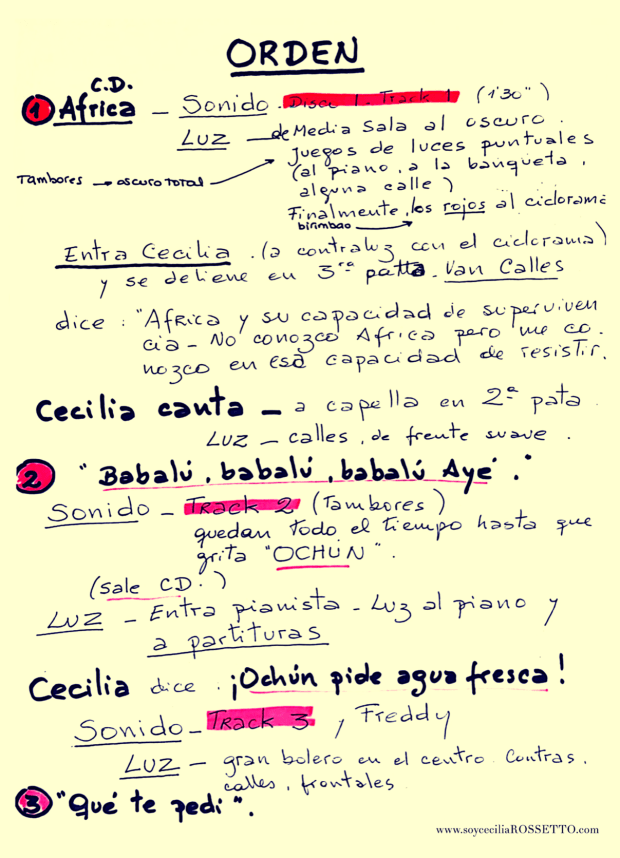 ORDEN
C.D.
1 Africa - Sonido. Disco 1. Track 1 (1'30")
LUZ - de Media Sala al oscuro.
Juegos de luces puntuales
(al piano, a la banqueta,
Tambores → oscuro total
alguna calle)
Finalmente, los rojos al ciclorama
birimbao
Entra Cecilia. (a contraluz con el ciclorama)
y se detiene en 3ra patta. Van Calles
dice: "Africa y su capacidad de superviven
cia - No conozco Africa pero me co.
nozco en esa capacidad de resistir.
Cecilia canta - a capella en 2ª pata.
LUZ - calles, de frente suave.
2 "Babalú, babalú, babalú Ayé."
Sonido - Track 2 (Tambores)
quedan todo el tiempo hasta que
grita "OCHÚN".
(sale CD.)
LUZ - Entra pianista - Luz al piano y
a partituras
Cecilia dice. ¡Ochún pide agua fresca!
Sonido - Track 3 y Freddy
LUZ - gran bolero en el centro. Contras,
calles, frontales
3 "Qué te pedí".
www.soyceciliaROSSETTO.com